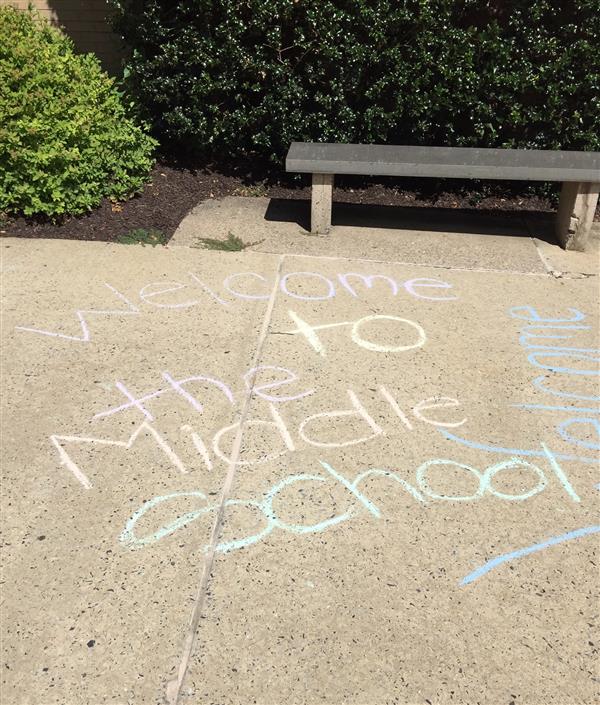 Welcome
to
the
Middle
School
Welcome